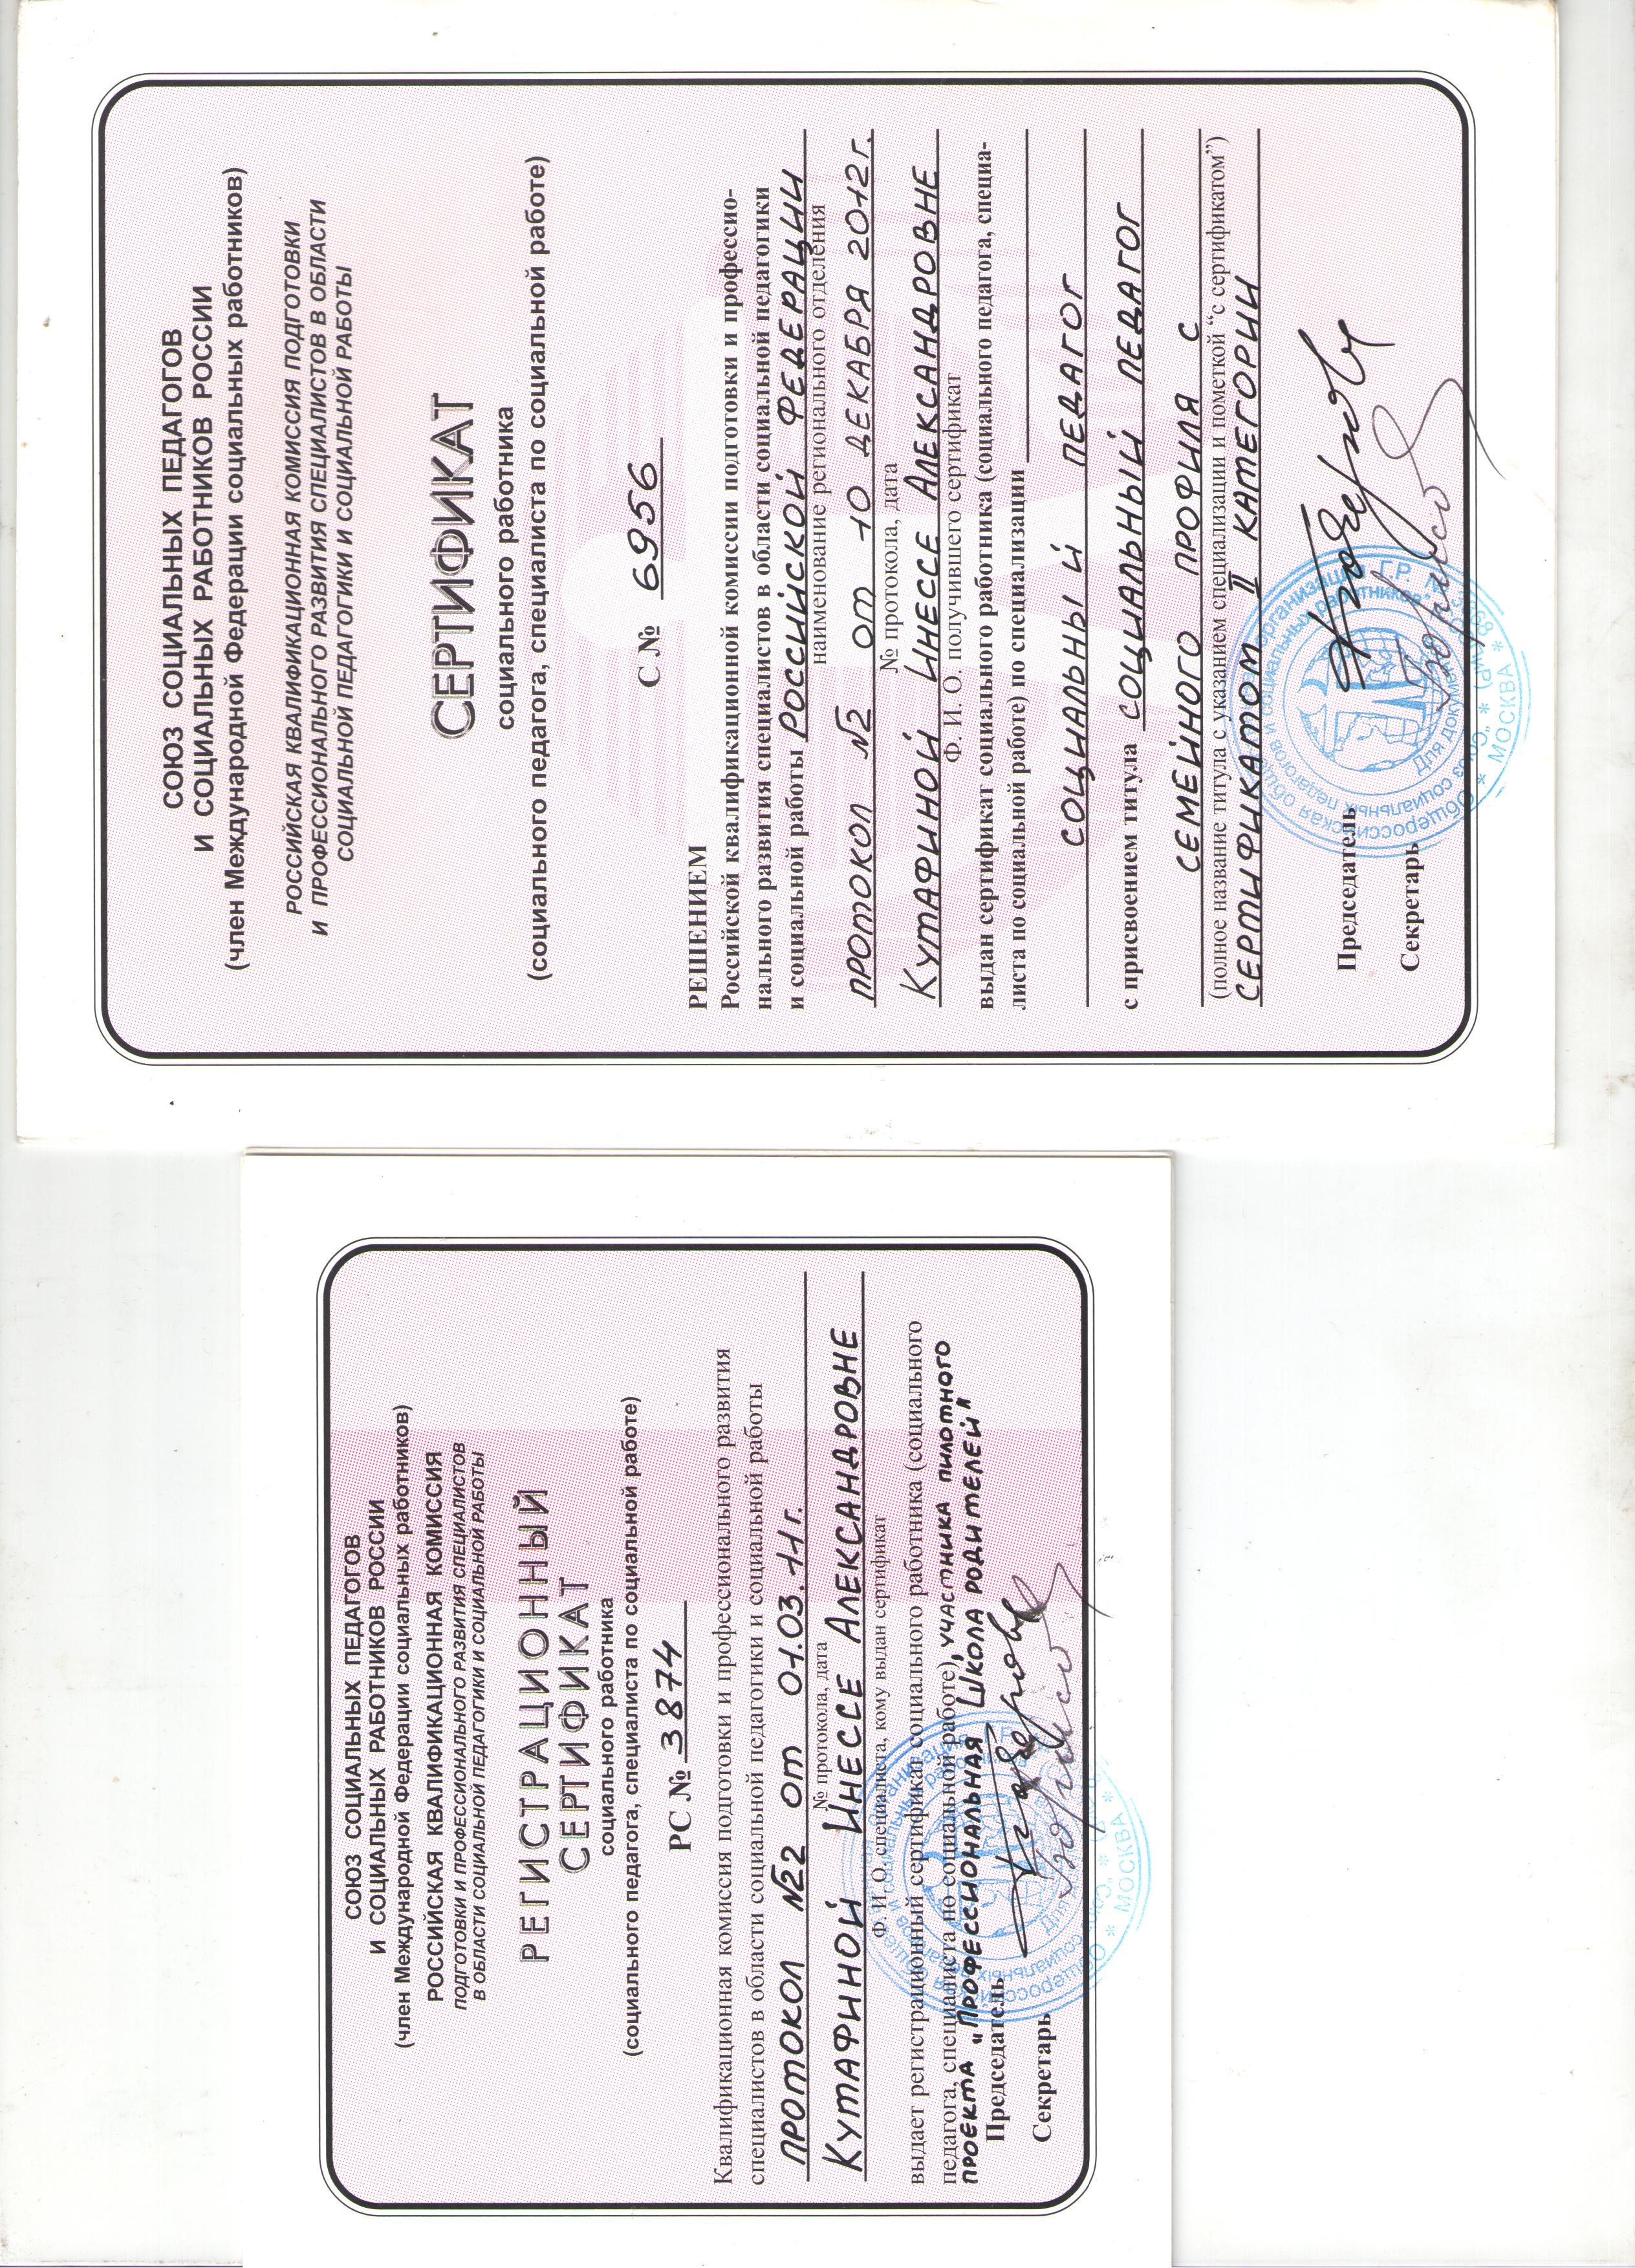 СОЮЗ СОЦИАЛЬНЫХ ПЕДАГОГОВ
И СОЦИАЛЬНЫХ РАБОТНИКОВ РОССИИ
(член Международной Федерации социальных работников)
РОССИЙСКАЯ КВАЛИФИКАЦИОННАЯ КОМИССИЯ
ПОДГОТОВКИ И ПРОФЕССИОНАЛЬНОГО РАЗВИТИЯ СПЕЦИАЛИСТОВ
В ОБЛАСТИ СОЦИАЛЬНОЙ ПЕДАГОГИКИ И СОЦИАЛЬНОЙ РАБОТЫ
РЕГИСТРАЦИОННЫЙ
СЕРТИФИКАТ
социального работника
(социального педагога, специалиста по социальной работе)
РС № 3874
Квалификационная комиссия подготовки и профессионального развития
специалистов в области социальной педагогики и социальной работы
ПРОТОКОЛ №22 от 01.03.11г.
№ протокола, дата
КУТАФИНОЙ ИНЕССЕ АЛЕКСАНДРОВНЕ
Ф. И. О. специалиста, кому выдан сертификат
выдает регистрационный сертификат социального работника (социального
педагога, специалиста по социальной работе), УЧАСТНИКА ПИЛОТНОГО
ПРОЕКТА „ПРОФЕССИОНАЛЬНАЯ ШКОЛА РОДИТЕЛЕЙ"
Председатель
Секретарь
МОСКВА
СОЮЗ СОЦИАЛЬНЫХ ПЕДАГОГОВ
И СОЦИАЛЬНЫХ РАБОТНИКОВ РОССИИ
(член Международной Федерации социальных работников)
РОССИЙСКАЯ КВАЛИФИКАЦИОННАЯ КОМИССИЯ ПОДГОТОВКИ
И ПРОФЕССИОНАЛЬНОГО РАЗВИТИЯ СПЕЦИАЛИСТОВ В ОБЛАСТИ
СОЦИАЛЬНОЙ ПЕДАГОГИКИ И СОЦИАЛЬНОЙ РАБОТЫ
СЕРТИФИКАТ
социального работника
(социального педагога, специалиста по социальной работе)
С № 6956
РЕШЕНИЕМ
Российской квалификационной комиссии подготовки и профессио-
нального развития специалистов в области социальной педагогики
и социальной работы РОССИЙСКОЙ ФЕДЕРАЦИИ
наименование регионального отделения
ПРОТОКОЛ №2 от 10 ДЕКАБРЯ 2012г.
№ протокола, дата
КУТАФИНОЙ ИНЕССЕ АЛЕКСАНДРОВНЕ
Ф. И. О. получившего сертификат
выдан сертификат социального работника (социального педагога, специа-
листа по социальной работе) по специализации
СОЦИАЛЬНЫЙ ПЕДАГОГ
с присвоением титула СОЦИАЛЬНЫЙ ПЕДАГОГ
СЕМЕЙНОГО ПРОФИЛЯ С
(полное название титула с указанием специализации и пометкой “с сертификатом”)
СЕРТИФИКАТОМ II КАТЕГОРИИ
Председатель
Секретарь
МОСКВА